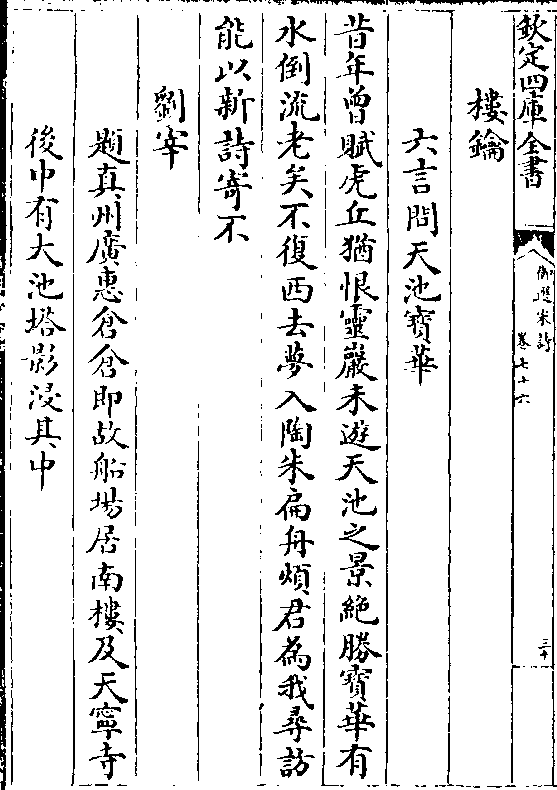 欽定四庫全書
御選宋詩
卷七十六
三十
樓鑰
六言問天池寶華
昔年曾賦虎丘猶恨靈巖未遊天池之景絶勝寶華有
水倒流老矣不復西去夢入陶朱扁舟煩君為我尋訪
能以新詩寄不
劉宰
題真州廣惠倉倉即故船場居南樓及天寧寺
後中有大池塔影浸其中